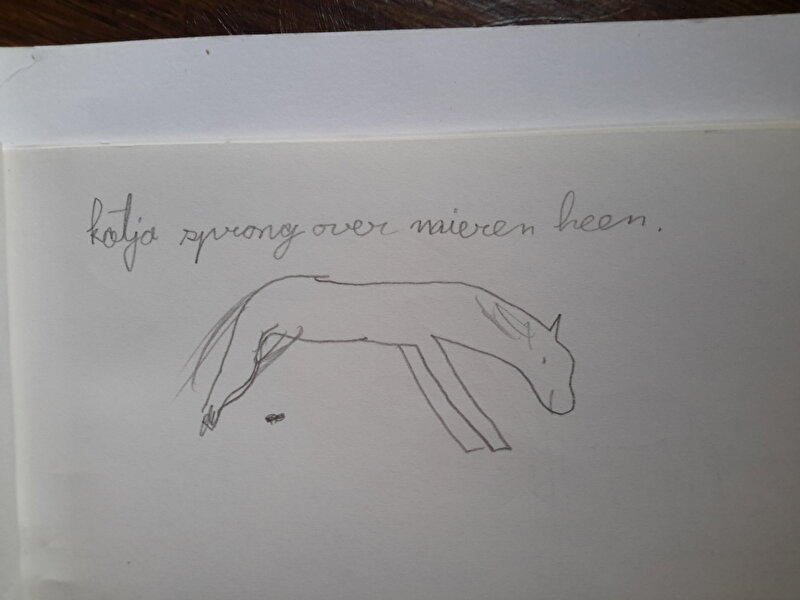 katja sprong over mieren heen.